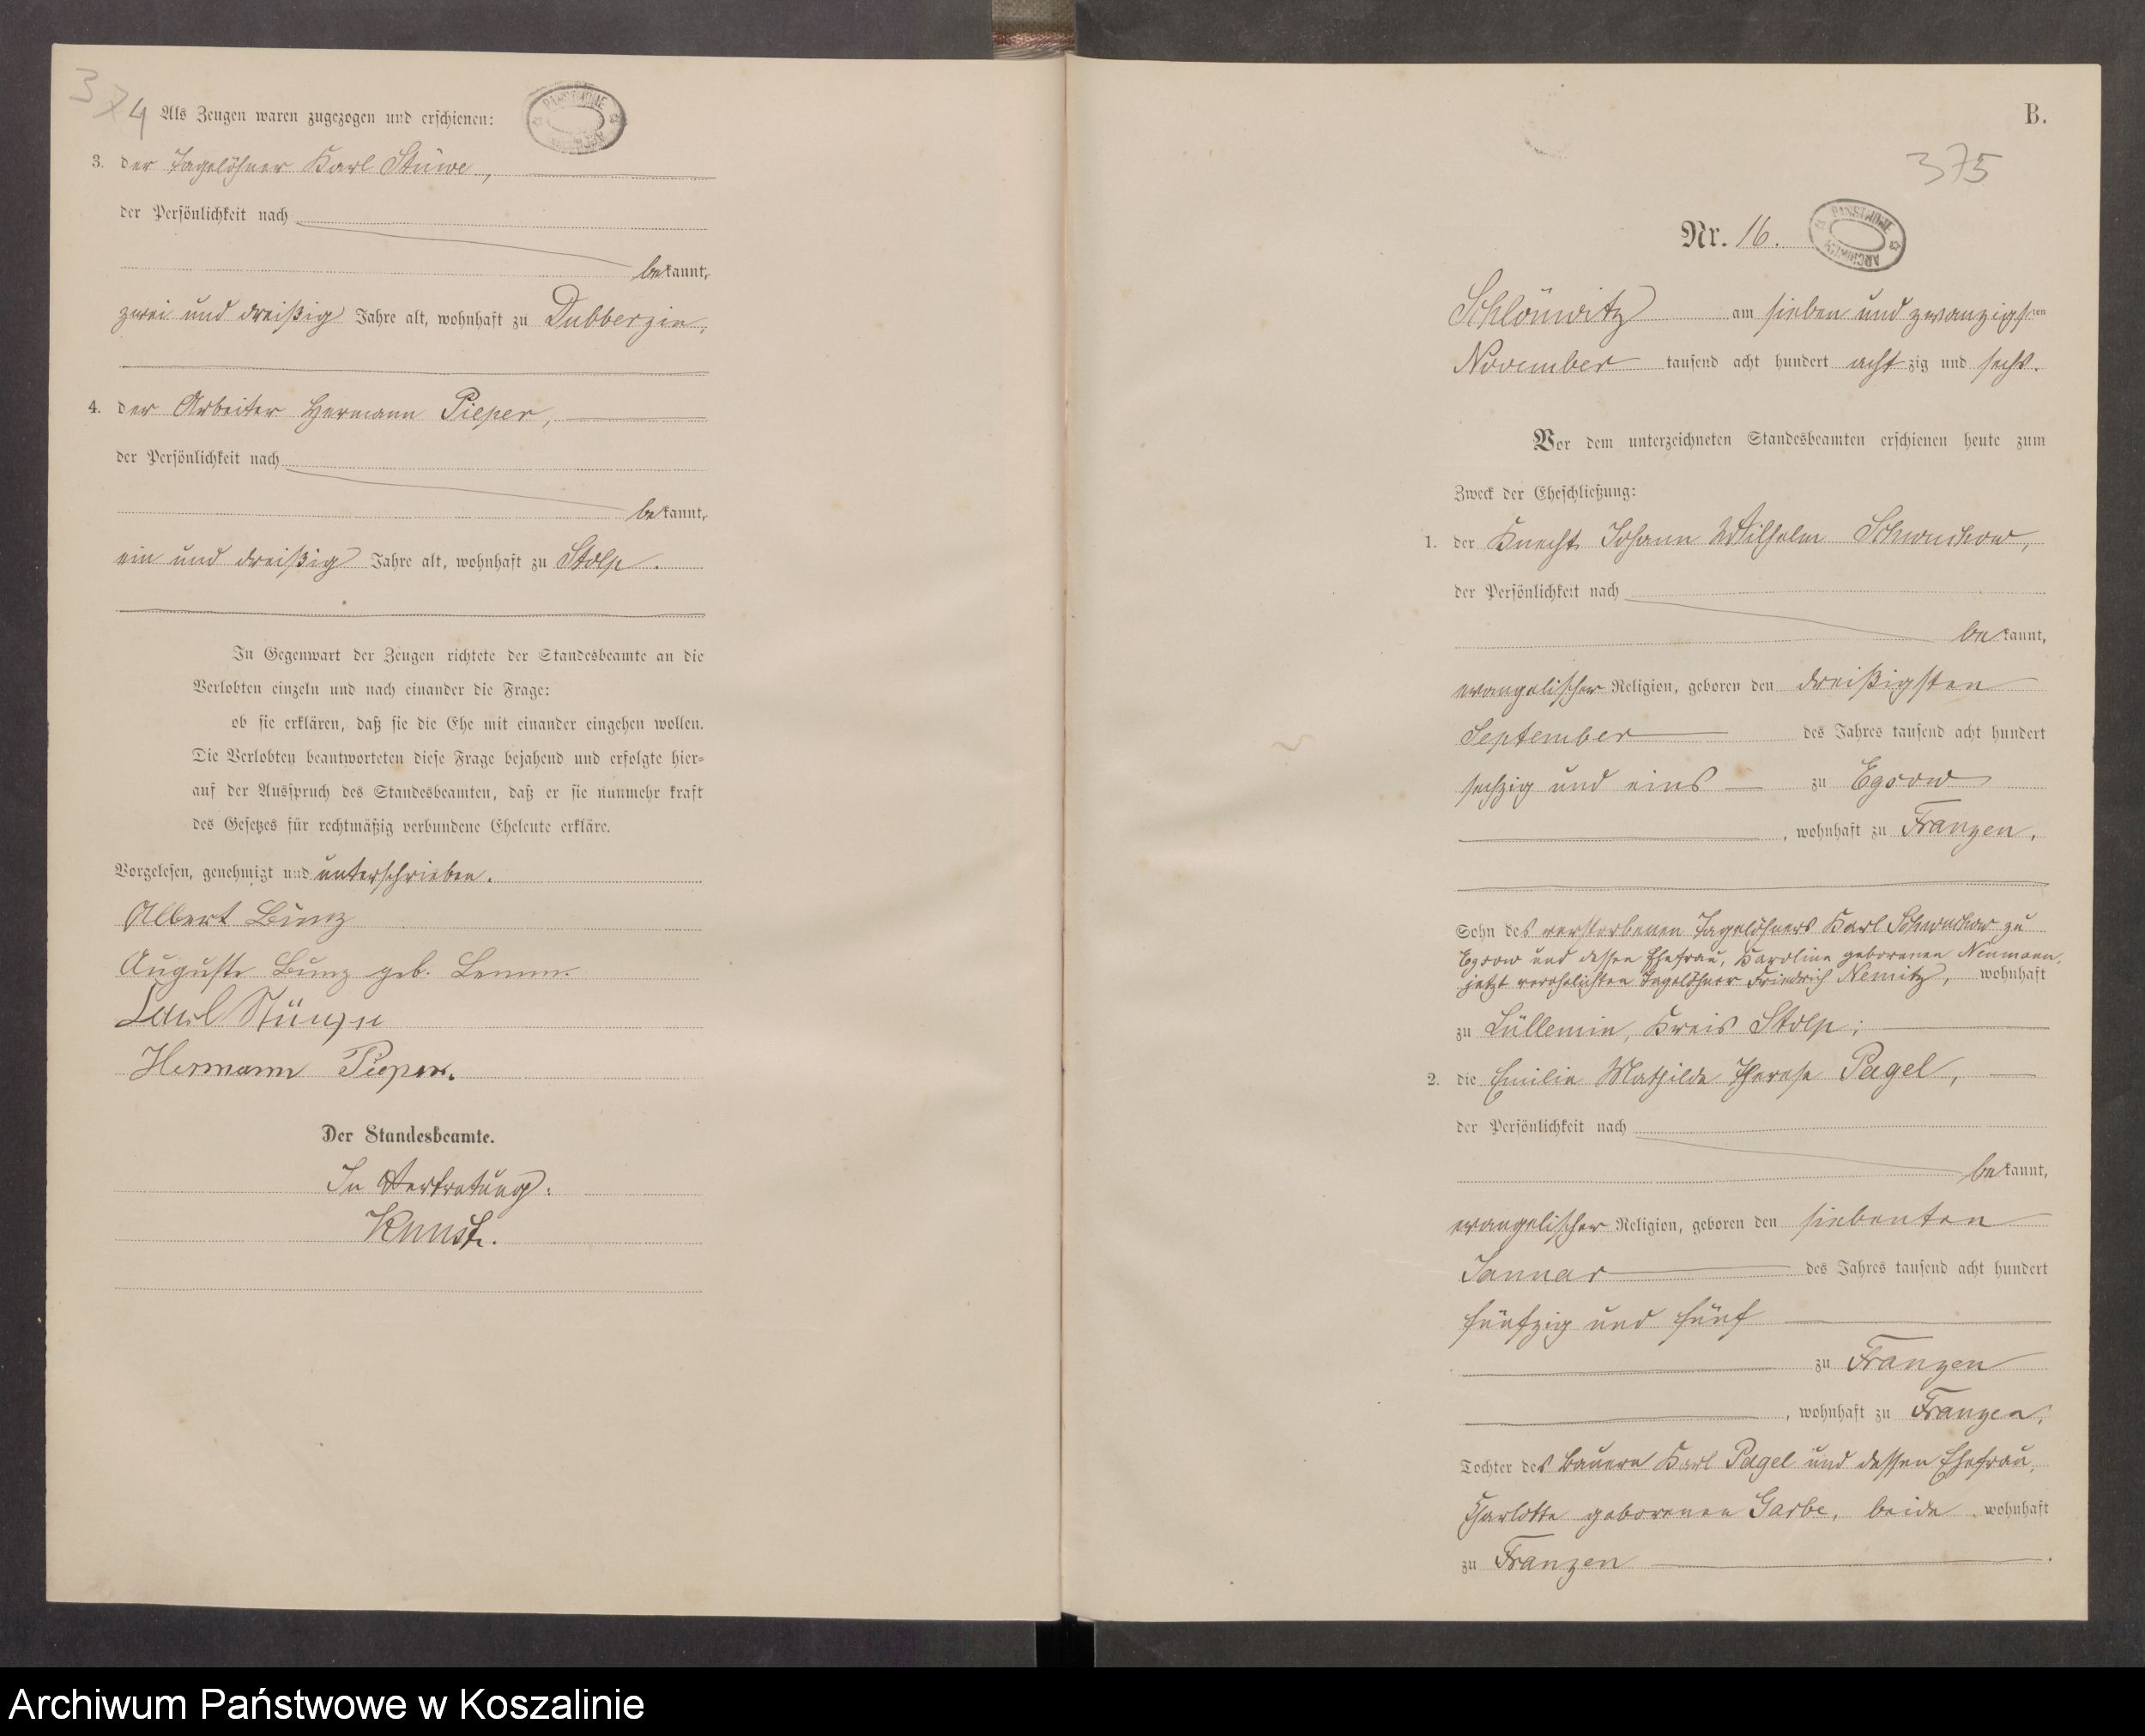 374
Als Zeugen waren zugezogen und erschienen:
PAŃSTWOWE ARCHIWUM
3. der Tagelöhner Karl Stüwe,
der Persönlichkeit nach
bekannt,
zwei und dreißig Jahre alt, wohnhaft zu Dubberzin,
4. der Arbeiter Hermann Pieper,
der Persönlichkeit nach
bekannt,
ein und dreißig Jahre alt, wohnhaft zu Stolp.
In Gegenwart der Zeugen richtete der Standesbeamte an die
Verlobten einzeln und nach einander die Frage:
ob sie erklären, daß sie die Ehe mit einander eingehen wollen.
Die Verlobten beantworteten diese Frage bejahend und erfolgte hier-
auf der Ausspruch des Standesbeamten, daß er sie nunmehr kraft
des Gesetzes für rechtmäßig verbundene Eheleute erkläre.
Vorgelesen, genehmigt und unterschrieben.
Albert Bunz
Auguste Bunz geb.
Hermann Pieper.
Der Standesbeamte.
In Vertretung.
Kunst.
B.
375
Nr. 16.
PAŃSTWOWE ARCHIWUM
Schlönwitz am sieben und zwanzigsten
November tausend acht hundert achtzig und sechs.
Vor dem unterzeichneten Standesbeamten erschienen heute zum
Zweck der Eheschließung:
1. der Knecht Johann Wilhelm Schwuchow,
der Persönlichkeit nach
bekannt,
evangelischer Religion, geboren den dreißigsten
September des Jahres tausend acht hundert
sechzig und eins zu Egsow
, wohnhaft zu Franzen,
Sohn des verstorbenen Tagelöhners Karl Schwuchow zu
Egsow und dessen Ehefrau, Karoline geborenen Neumann,
jetzt verehelichten Tagelöhner Friedrich Nemitz, wohnhaft
zu Lüllemin, Kreis Stolp;
2. die Emilie Mathilde Therese Pagel,
der Persönlichkeit nach
bekannt,
evangelischer Religion, geboren den siebenten
Januar des Jahres tausend acht hundert
fünfzig und fünf
zu Franzen
, wohnhaft zu Franzen,
Tochter des Bauern Karl Pagel und dessen Ehefrau,
Charlotte geborenen Garbe, beide wohnhaft
zu Franzen.
Archiwum Państwowe w Koszalinie